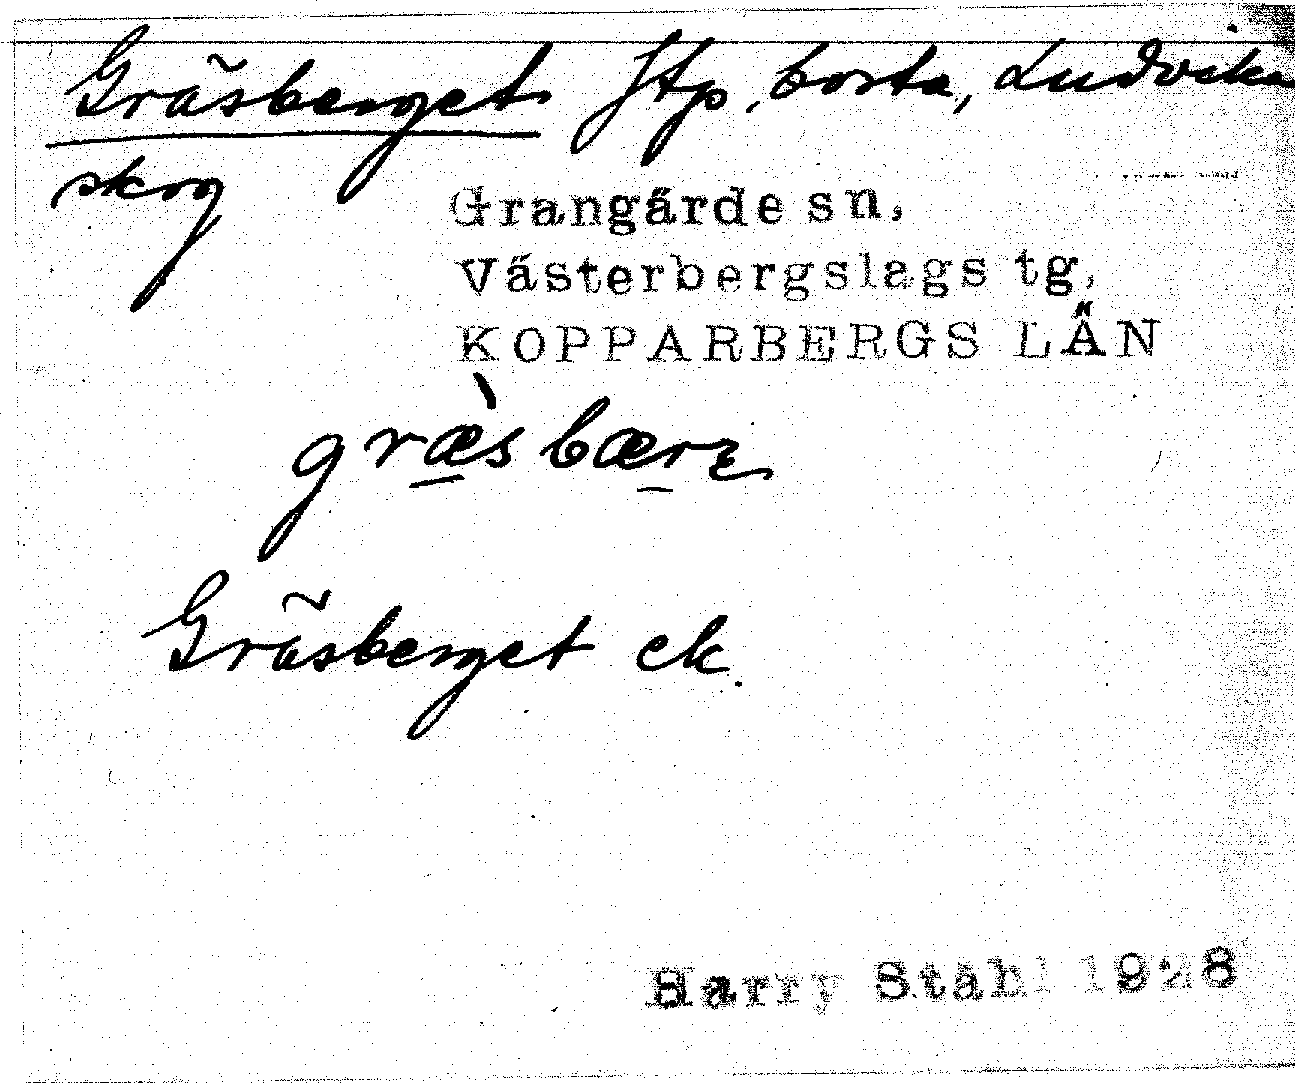 Gräsberget ftp, borta, Ludvika
skog
Grangärde sn,
Västerbergslags tg,
KOPPARBERGS LÄN
græ̀sbærɛ
Gräsberget ek.
Harry Ståhl 1928